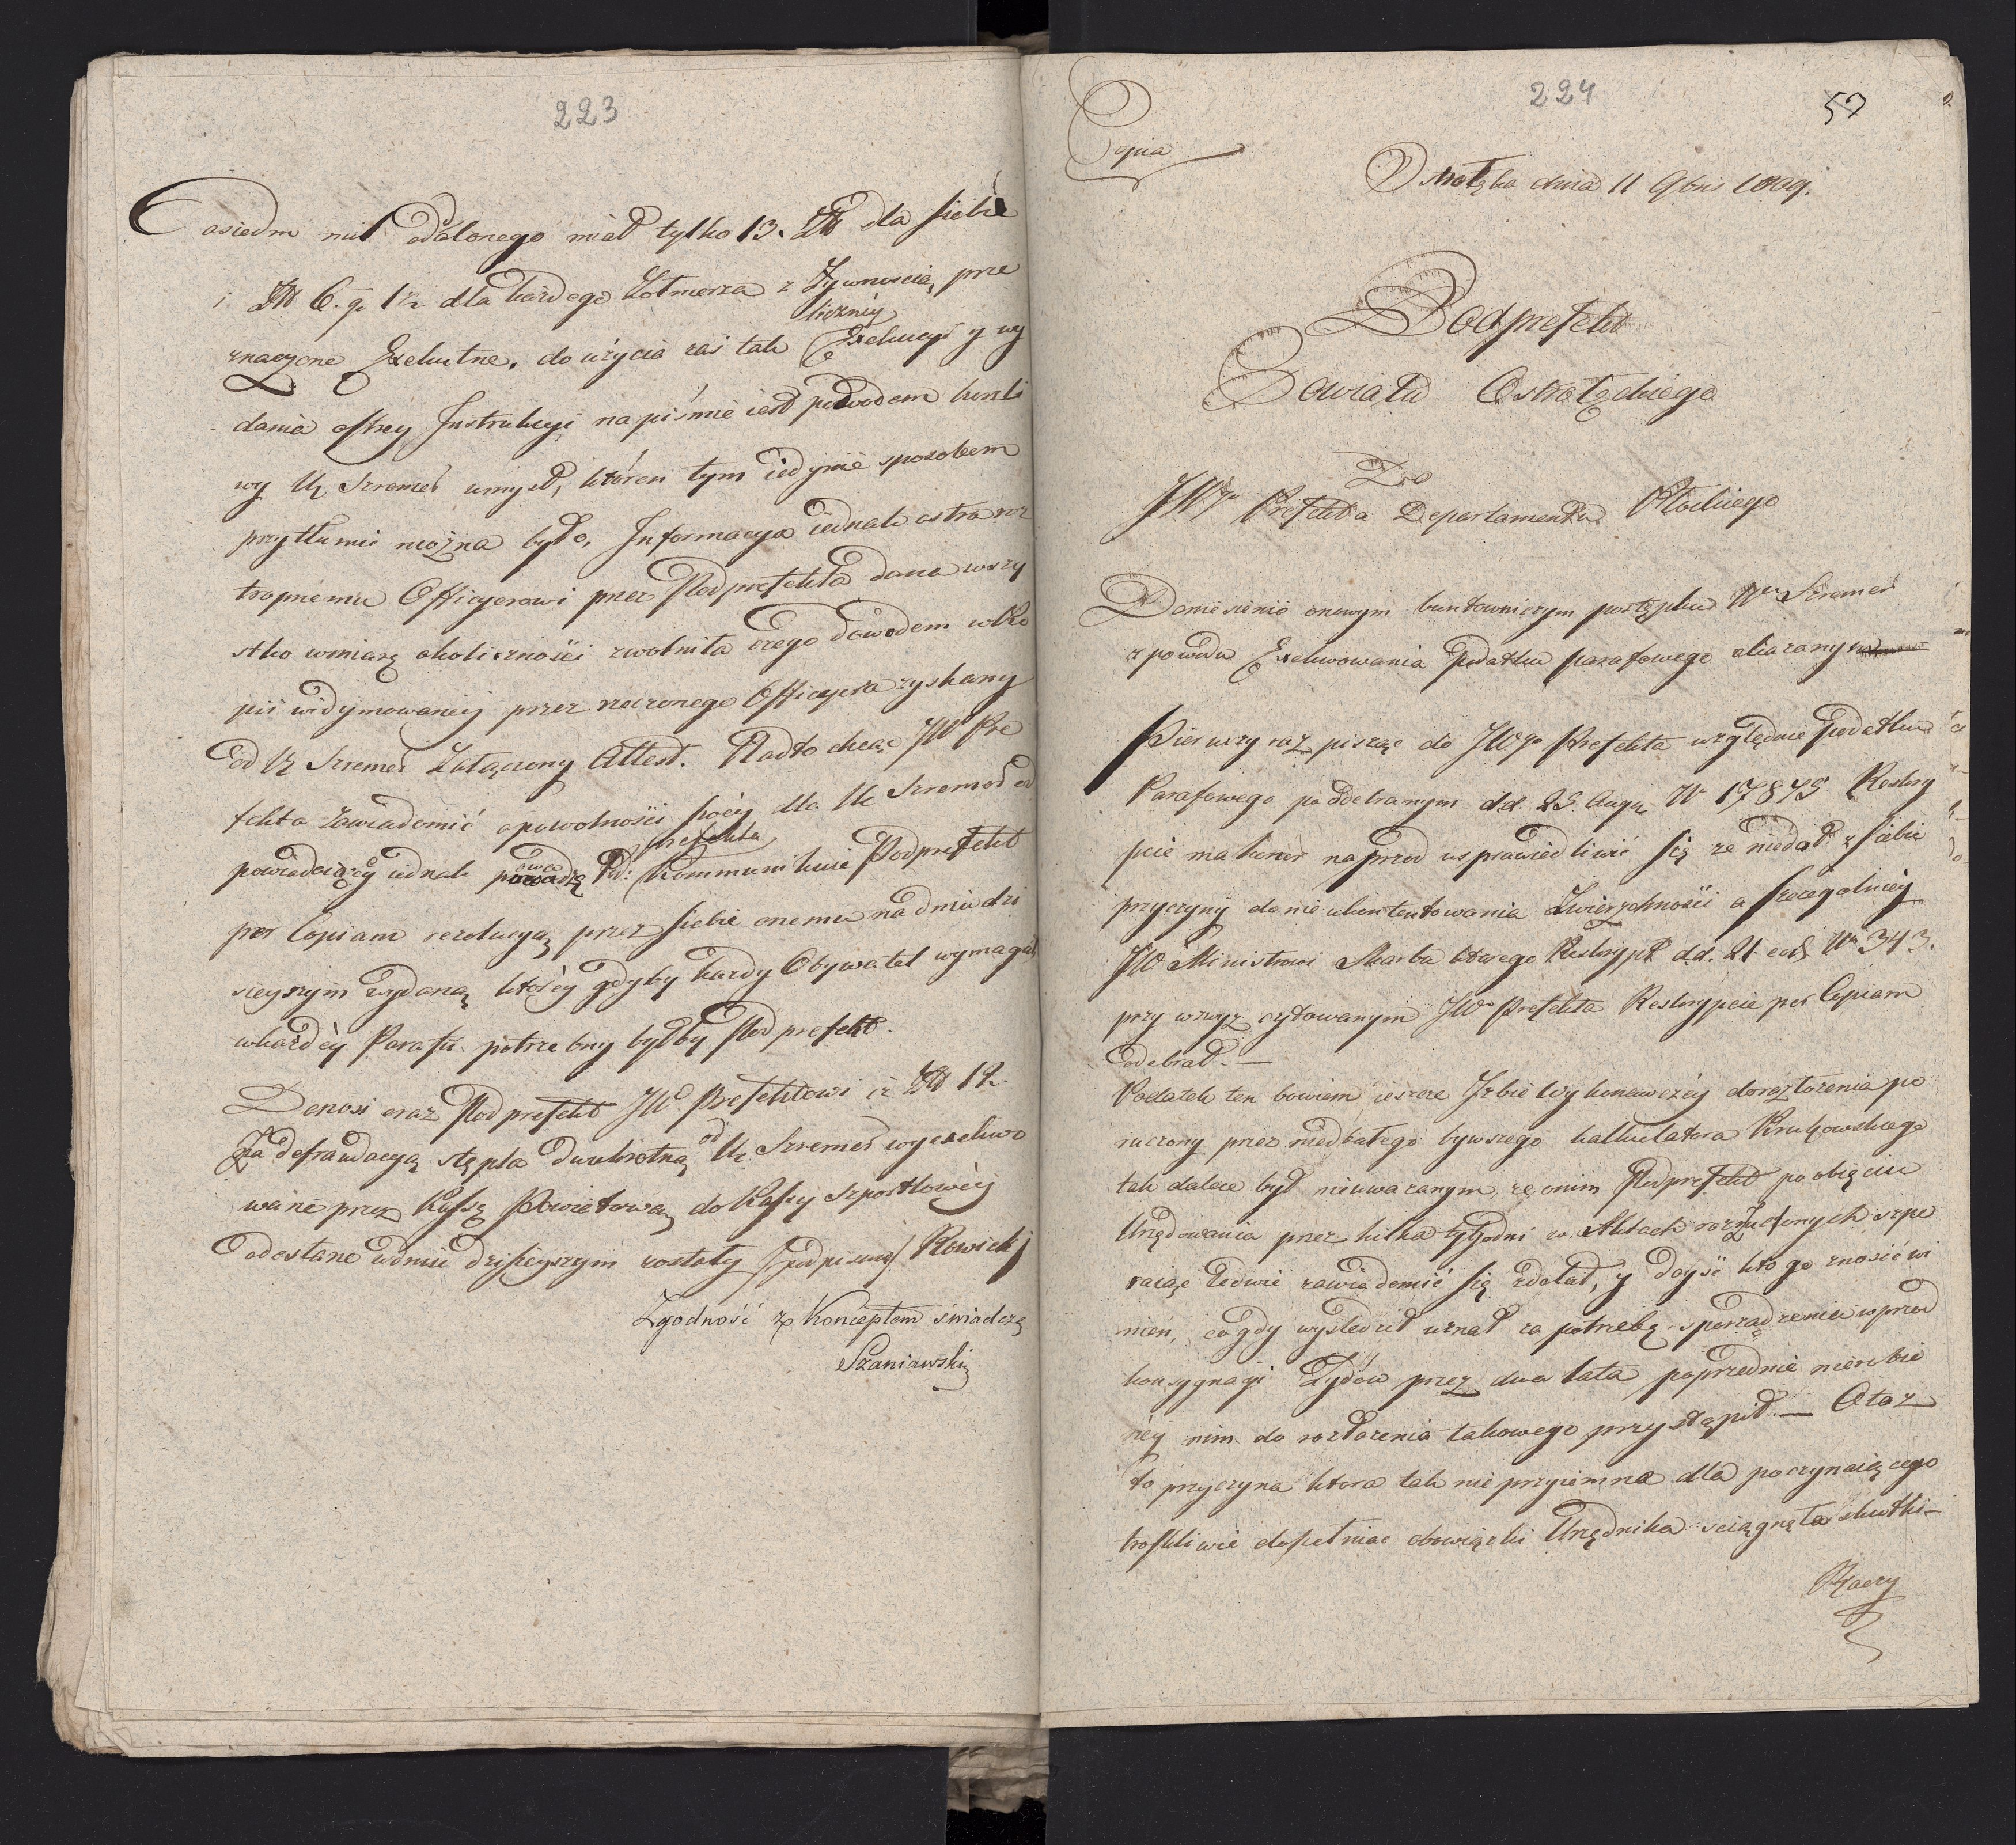 223
osiedm mil odalonego miał tylko 13. Zł dla siebie
i Zł 6. g. 1½ dla każdego Żołnierza z Żywnoscią prze
znaczone Exekutne. do użycia zaś tak liczney Exekucyi y wy
dania ostrey Instrukcyi na piśmie iest powodem burzli
wy Ur. Szremer umysł, któren tym iedynie sposobem
przytłumić można było, Informacya iednak ostra roz
tropnemu Officyerowi przez Podprefekta dana wszy
stko wmiarę okoliczności zwolniła czego dowodem wKo
pii widymowaney przez rzeczonego Officyera zyskany
od Ur Szremer Załączony Attest. Nadto chcąc JW Pre
fekta zawiadomić opowolności swóiey dla Ur Szremer od
powiadaiący iednak powadze Pod: prefekta Kommunikuie Podprefekt
per Copiam rezolucyą przez siebie onemu na dniu dzi
sieyszym wydaną którey gdyby każdy Obywatel wymagał
wkażdèy Parafii potrzebny byłby Podprefekt.
Donosi oraz Podprefekt JW Prefektowi iż Zł 12.
Za defraudacyą stępla dwukrotną od Ur. Szremer wyexekwo
wane przez Kassę Powiatową do Kassy Szportlowéy
odesłane wdniu dzisieyszym zostały /podpisano/ Rowicki
Zgodność z Konceptem świadczę
Szaniawski
224
57
Copia
Ostrołęka dnia 11 9bris 1809.
Podprefekt
Powiatu Ostrołęckiego
Do
JWgo Prefekta Departamentu Płockiego
Doniesienie onowym buntowniczym postępku Ur Szremer
z powodu Exekwowania Podatku parafowego okazanym
Pierwszy raz pisząc do JWgo Prefekta względnie Podatku
Parafowego pooddebranym dd. 25. Augu. Nr 17875 Reskry
pcie ma honor naprzod usprawiedliwić się ze niedał z siebie
przyczyny do nieukontentowania Zwierzchności a szczegolniey
JW Ministrowi Skarbu którego Reskrypt dd. 21. ead. Nr 343.
przy wzwyz cytowanym JWo Prefekta Reskrypcie per Copiam
odebrał. —
Podatek ten bowiem ieszcze Izbie Wykonawczéy dorozłożenia po
ruczony przez niedbałego bywszego kalkulatora Krukowskiego
tak dalece był nieuważanym, ze onim Podprefekt po obięciu
Urzędowania przez kilka tygodni w Aktach rozrzuconych szpe
raiąc ledwie zawiadomić się zdołał, y doyść kto go znosić wi
nien, co gdy wysledził uznał za potrzebę sporządzenia wprzod
konsygnacyi Żydów przez dwa lata poprzednie nierobio
néy nim do rozłożenia takowego przystąpił. — Otoz
to przyczyna ktora tak nieprzyiemne dla poczynaiącego
troskliwie dopełniac obowiązki Urzędnika sciągnęła skutki —
Raczy